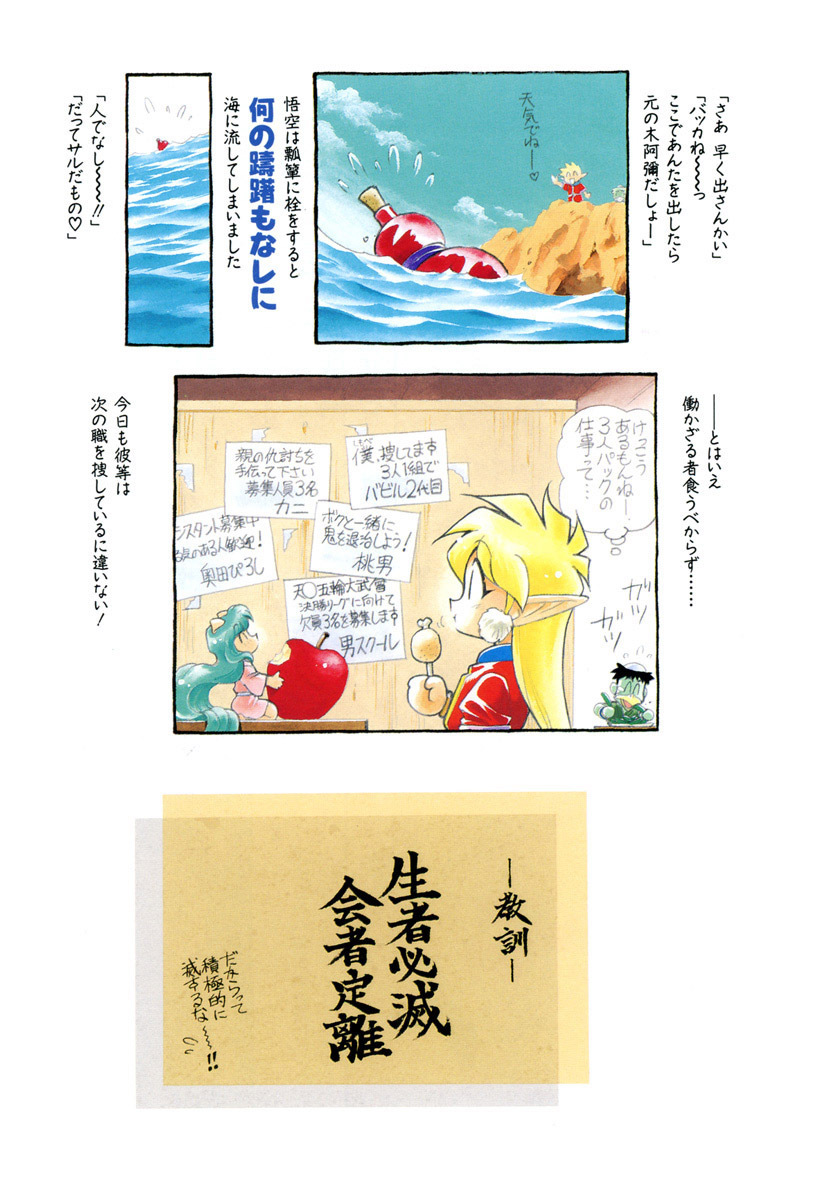 「さあ 早く出さんかい」
「バッカね～～っ
ここであんたを出したら
元の木阿彌だしょー」
天気でねー♡
悟空は瓢箪に栓をすると
何の躊躇もなしに
海に流してしまいました
「人でなし～～!!」
「だってサルだもの♡」
――とはいえ
働かざる者食うべからず……
けっこう
あるもんねー
3人パックの
仕事って…
ガツ
ガツ
僕、捜してます
しもべ
3人1組で
バビル2代目
親の仇討ちを
手伝って下さい
募集人員3名
カニ
ボクと一緒に
鬼を退治しよう!
桃男
シスタント募集中
る気のある人歓迎!
奥田ひろし
天〇五輪大武會
決勝リーグに向けて
欠員3名を募集します
男スクール
今日も彼等は
次の職を捜しているに違いない!
―教訓―
生者必滅
会者定離
だからって
積極的に
滅するな～～!!